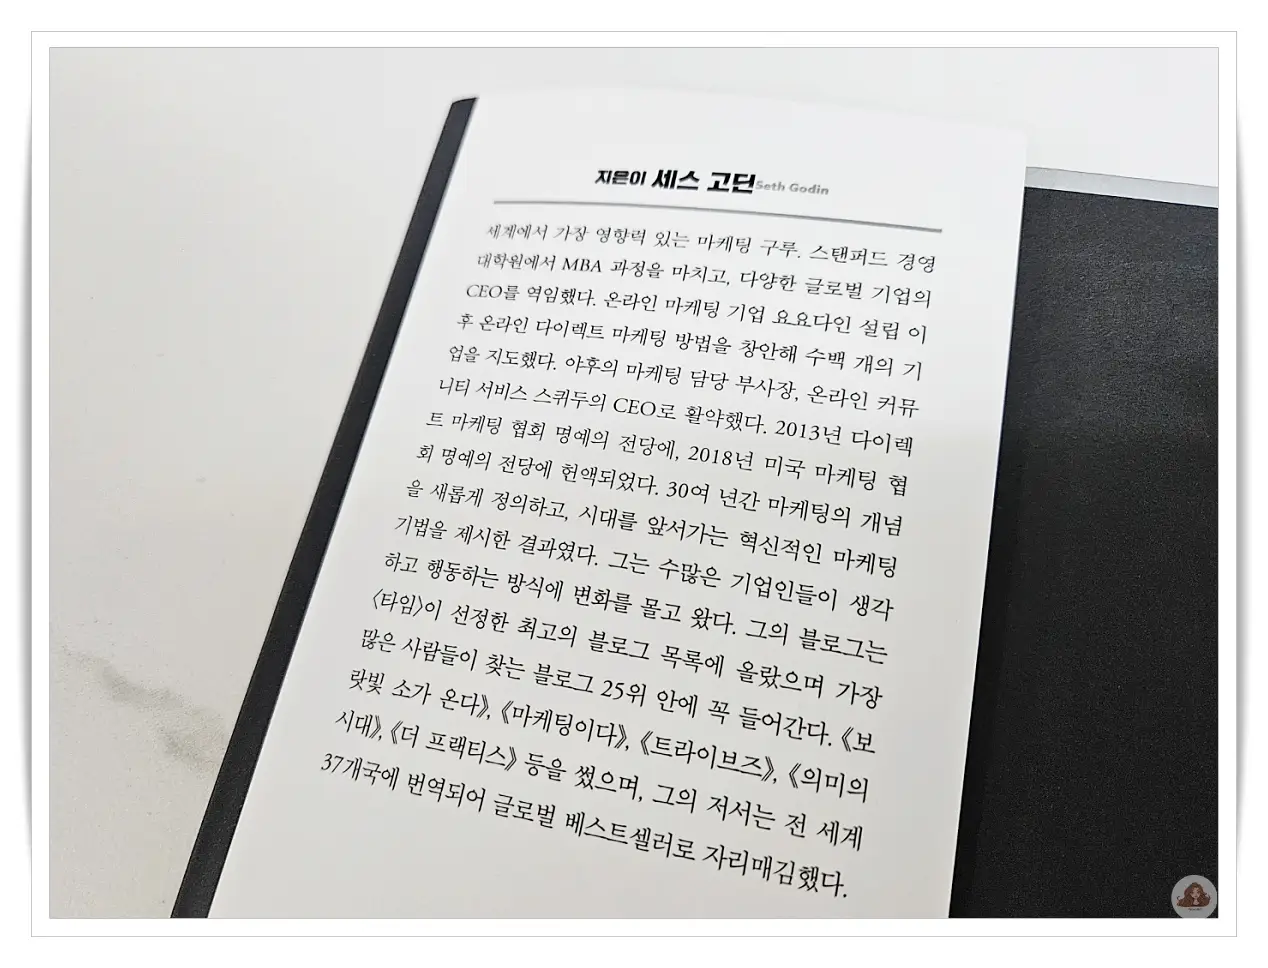 지은이 세스 고딘 Seth Godin
세계에서 가장 영향력 있는 마케팅 구루. 스탠퍼드 경영
대학원에서 MBA 과정을 마치고, 다양한 글로벌 기업의
CEO를 역임했다. 온라인 마케팅 기업 요요다인 설립 이
후 온라인 다이렉트 마케팅 방법을 창안해 수백 개의 기
업을 지도했다. 야후의 마케팅 담당 부사장, 온라인 커뮤
니티 서비스 스퀴두의 CEO로 활약했다. 2013년 다이렉
트 마케팅 협회 명예의 전당에, 2018년 미국 마케팅 협
회 명예의 전당에 헌액되었다. 30여 년간 마케팅의 개념
을 새롭게 정의하고, 시대를 앞서가는 혁신적인 마케팅
기법을 제시한 결과였다. 그는 수많은 기업인들이 생각
하고 행동하는 방식에 변화를 몰고 왔다. 그의 블로그는
〈타임〉이 선정한 최고의 블로그 목록에 올랐으며 가장
많은 사람들이 찾는 블로그 25위 안에 꼭 들어간다. 《보
랏빛 소가 온다》, 《마케팅이다》, 《트라이브즈》, 《의미의
시대》, 《더 프랙티스》 등을 썼으며, 그의 저서는 전 세계
37개국에 번역되어 글로벌 베스트셀러로 자리매김했다.